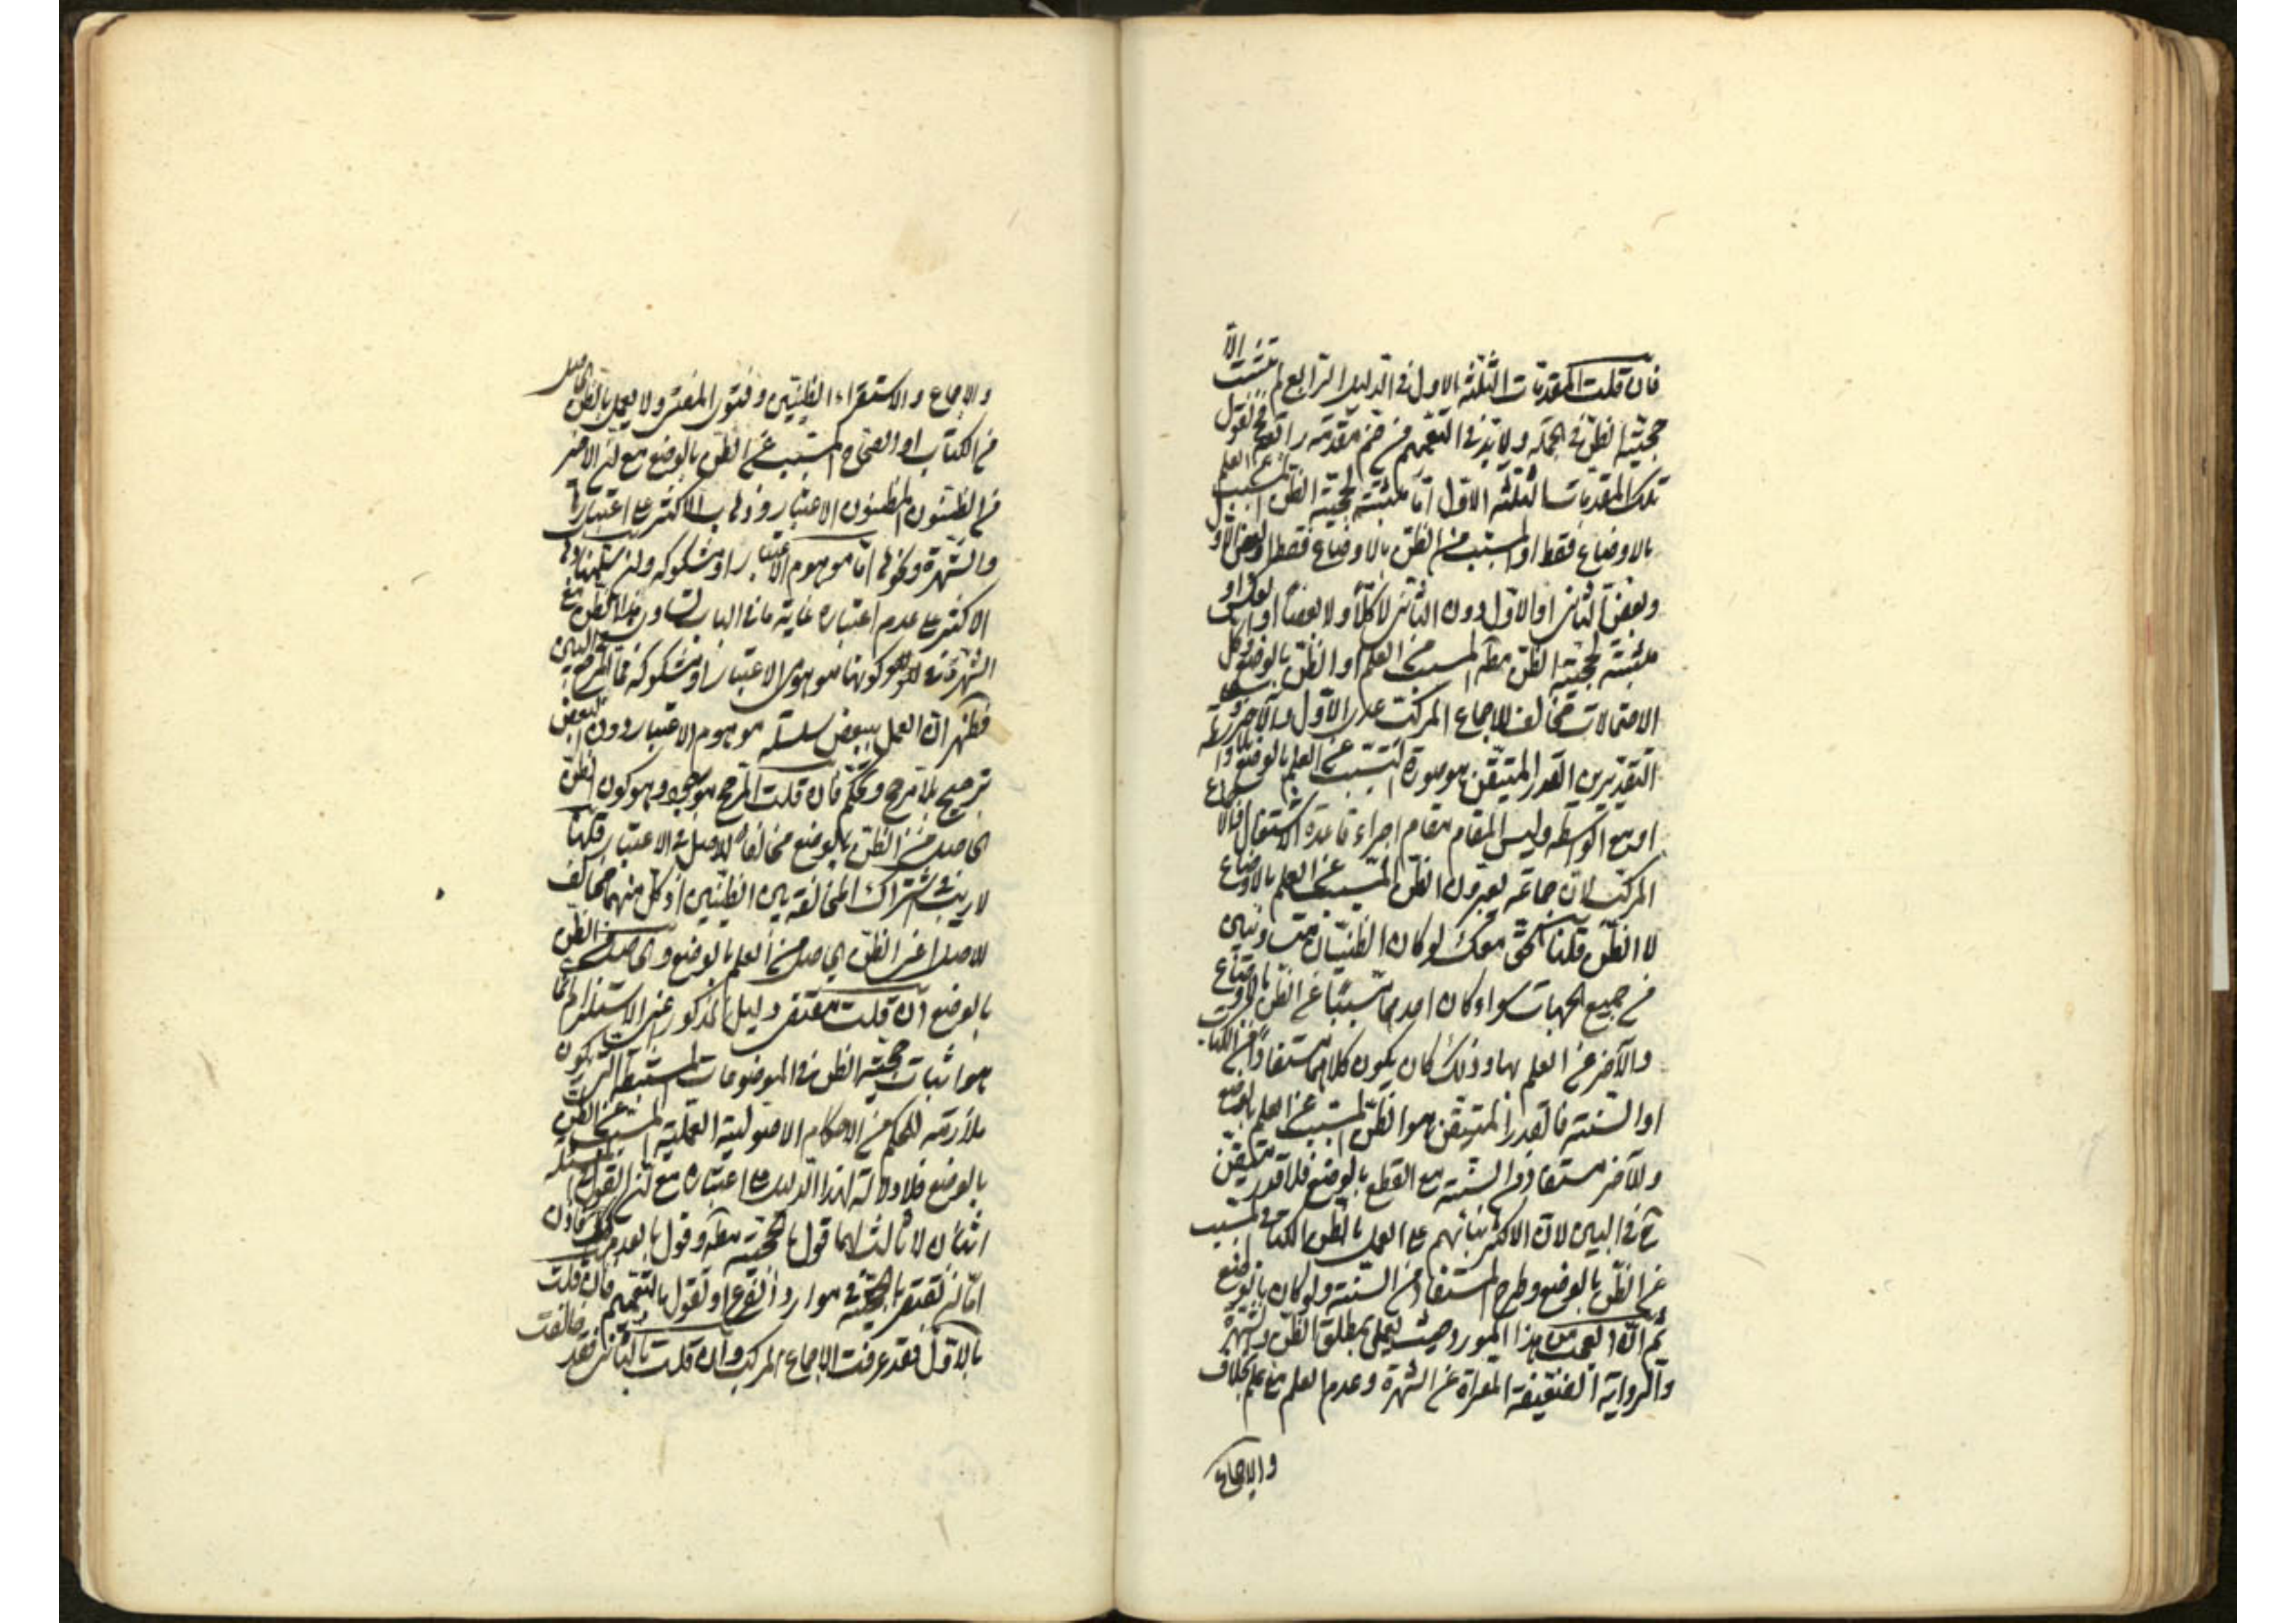 فان قلت المقدمات الثلثه الاول فى الدليل الرابع لم تثبت الا
حجية الظن فى الجملة ولا بد فى التعميم من ضم مقدمه رابعة فح نقول
تلك المقدمات الثلثه الاول اما مثبتة لحجية الظن المسبب عن العلم
بالاوضاع فقط او المسبب من الظن بالاوضاع فقط او بعض الاول
وبعض الثانى او الاول دون الثانى لا كلا ولا بعضا او
مثبتة لحجية الظن مطلقا المسبب من العلم او الظن بالوضع وكل
الاحتمالات مخالف للاجماع المركب عدى الاول والاخير
التقديرين القدر المتيقن هو صورة التسبب عن العلم بالوضع
او مع الواسطه وليس المقام مقام اجراء قاعدة الاشتغال
المركب لان جماعة يعتبرون الظن المسبب عن العلم بالاوضاع
لا الظن قلنا نحن معك لو كان الظنيان
فى جميع الجهات سواء وكان احدهما مسببا عن الظن بالاوضاع
والآخر عن العلم بها وذلك كان يكون كلاهما مستفادا من الكتاب
او السنة فالقدر المتيقن هو الظن المسبب عن العلم بالوضع
والآخر مستفاد من السنة مع القطع بالوضع فلا قدر متيقن
ح فى البين لان الاكثر بنائهم على العمل بالظن الكتابى المسبب
عن الظن بالوضع وطرح المستفاد من السنة ولو كان بالوضع
ثم ان العجب من هذا المورد حيث يعمل بمطلق الظن والشهرة
والرواية الضعيفة المعراة عن الشهرة وعدم العلم مع علم بخلاف
والاجماع
والاجماع والاستقراء الظنيين وفتوى المفتى ولا يعمل بالظن الحاصل
من الكتاب او الصحاح المسبب عن الظن بالوضع مع ان الاخير
من الظنون المظنون الاعتبار وذهاب الاكثر على اعتبارها
والشهرة ونحوها اما موهوم الاعتبار او مشكوكه ولئن سلمنا ذهاب
الاكثر على عدم اعتباره غاية ما فى الباب تساوى هذا الظن مع
الشهرة فى كونها موهوم الاعتبار او مشكوكه فما المرجح فى البين
فظهر ان العمل ببعض سلسلة موهوم الاعتبار دون البعض
ترجيح بلا مرجح وتحكم فان قلت المرجح موجود وهو كون الظن
الحاصل من الظن بالوضع مخالفا للاصل فى الاعتبار قلنا
لا ريب فى اشتراك المخالفة بين الظنيين اذ كل منهما مخالف
للاصل اعنى الظن الحاصل من العلم بالوضع والحاصل من الظن
بالوضع ان قلت مقتضى دليل المذكور اعنى الاستلزام انما
هو اثبات حجية الظن فى الموضوعات المستنبطه التى تكون
ملازمة للحكم من الاحكام الاصولية العملية المسبب عن الظن
بالوضع فلا دلالة لهذا الدليل على اعتباره مع ان القول فى المسئلة
اثنان لا ثالث لهما قول بالحجية مطلقا وقول بالعدم
اما ان تقتصر بالحجية فى موارد الفرع او تقول بالتعميم فان قلت
بالاول فقد عرفت الاجماع المركب وان قلت بالثانى فقد خالفت